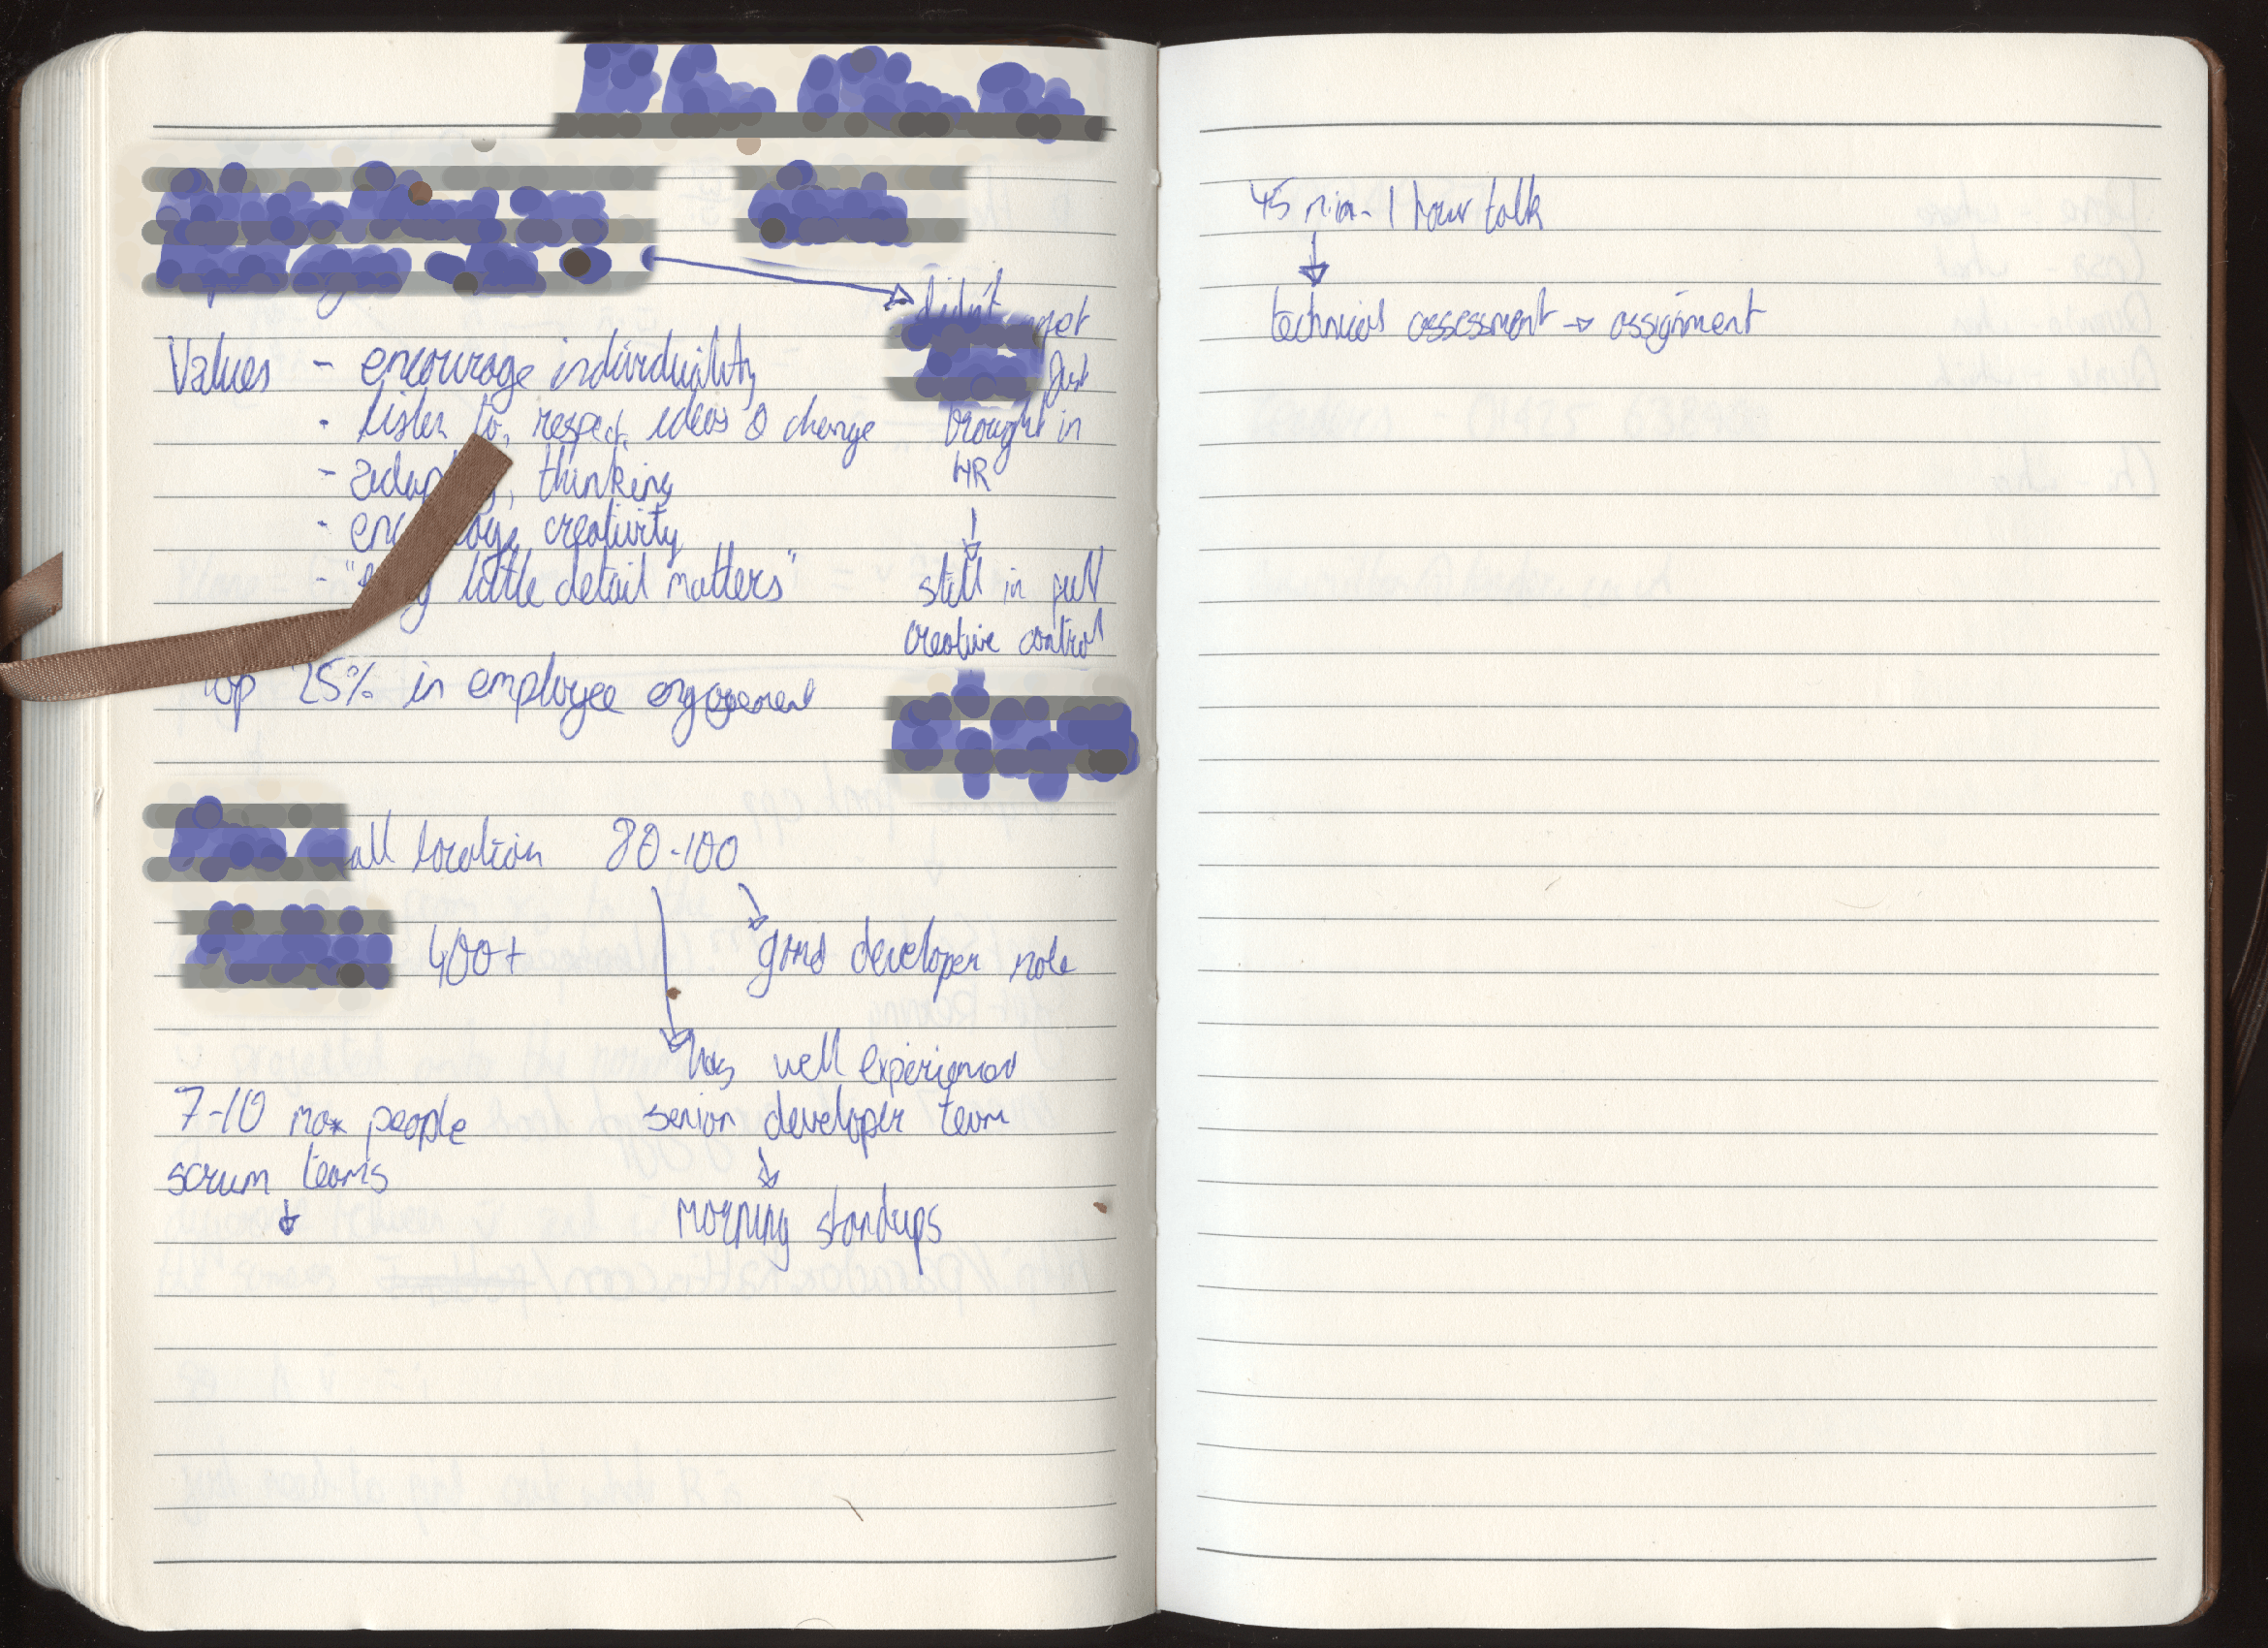 didn't
Values - encourage individuality
- listen to, respect ideas & change
- thinking
- creativity
- " little detail matters"
just
brought in
HR
↓
still in full
creative control
top 25% in employee engagement
all location 80-100
400+
good developer role
has well experienced
senior developer team
↓
morning standups
7-10 max people
scrum teams
↓
45 min - 1 hour talk
↓
technical assessment → assignment